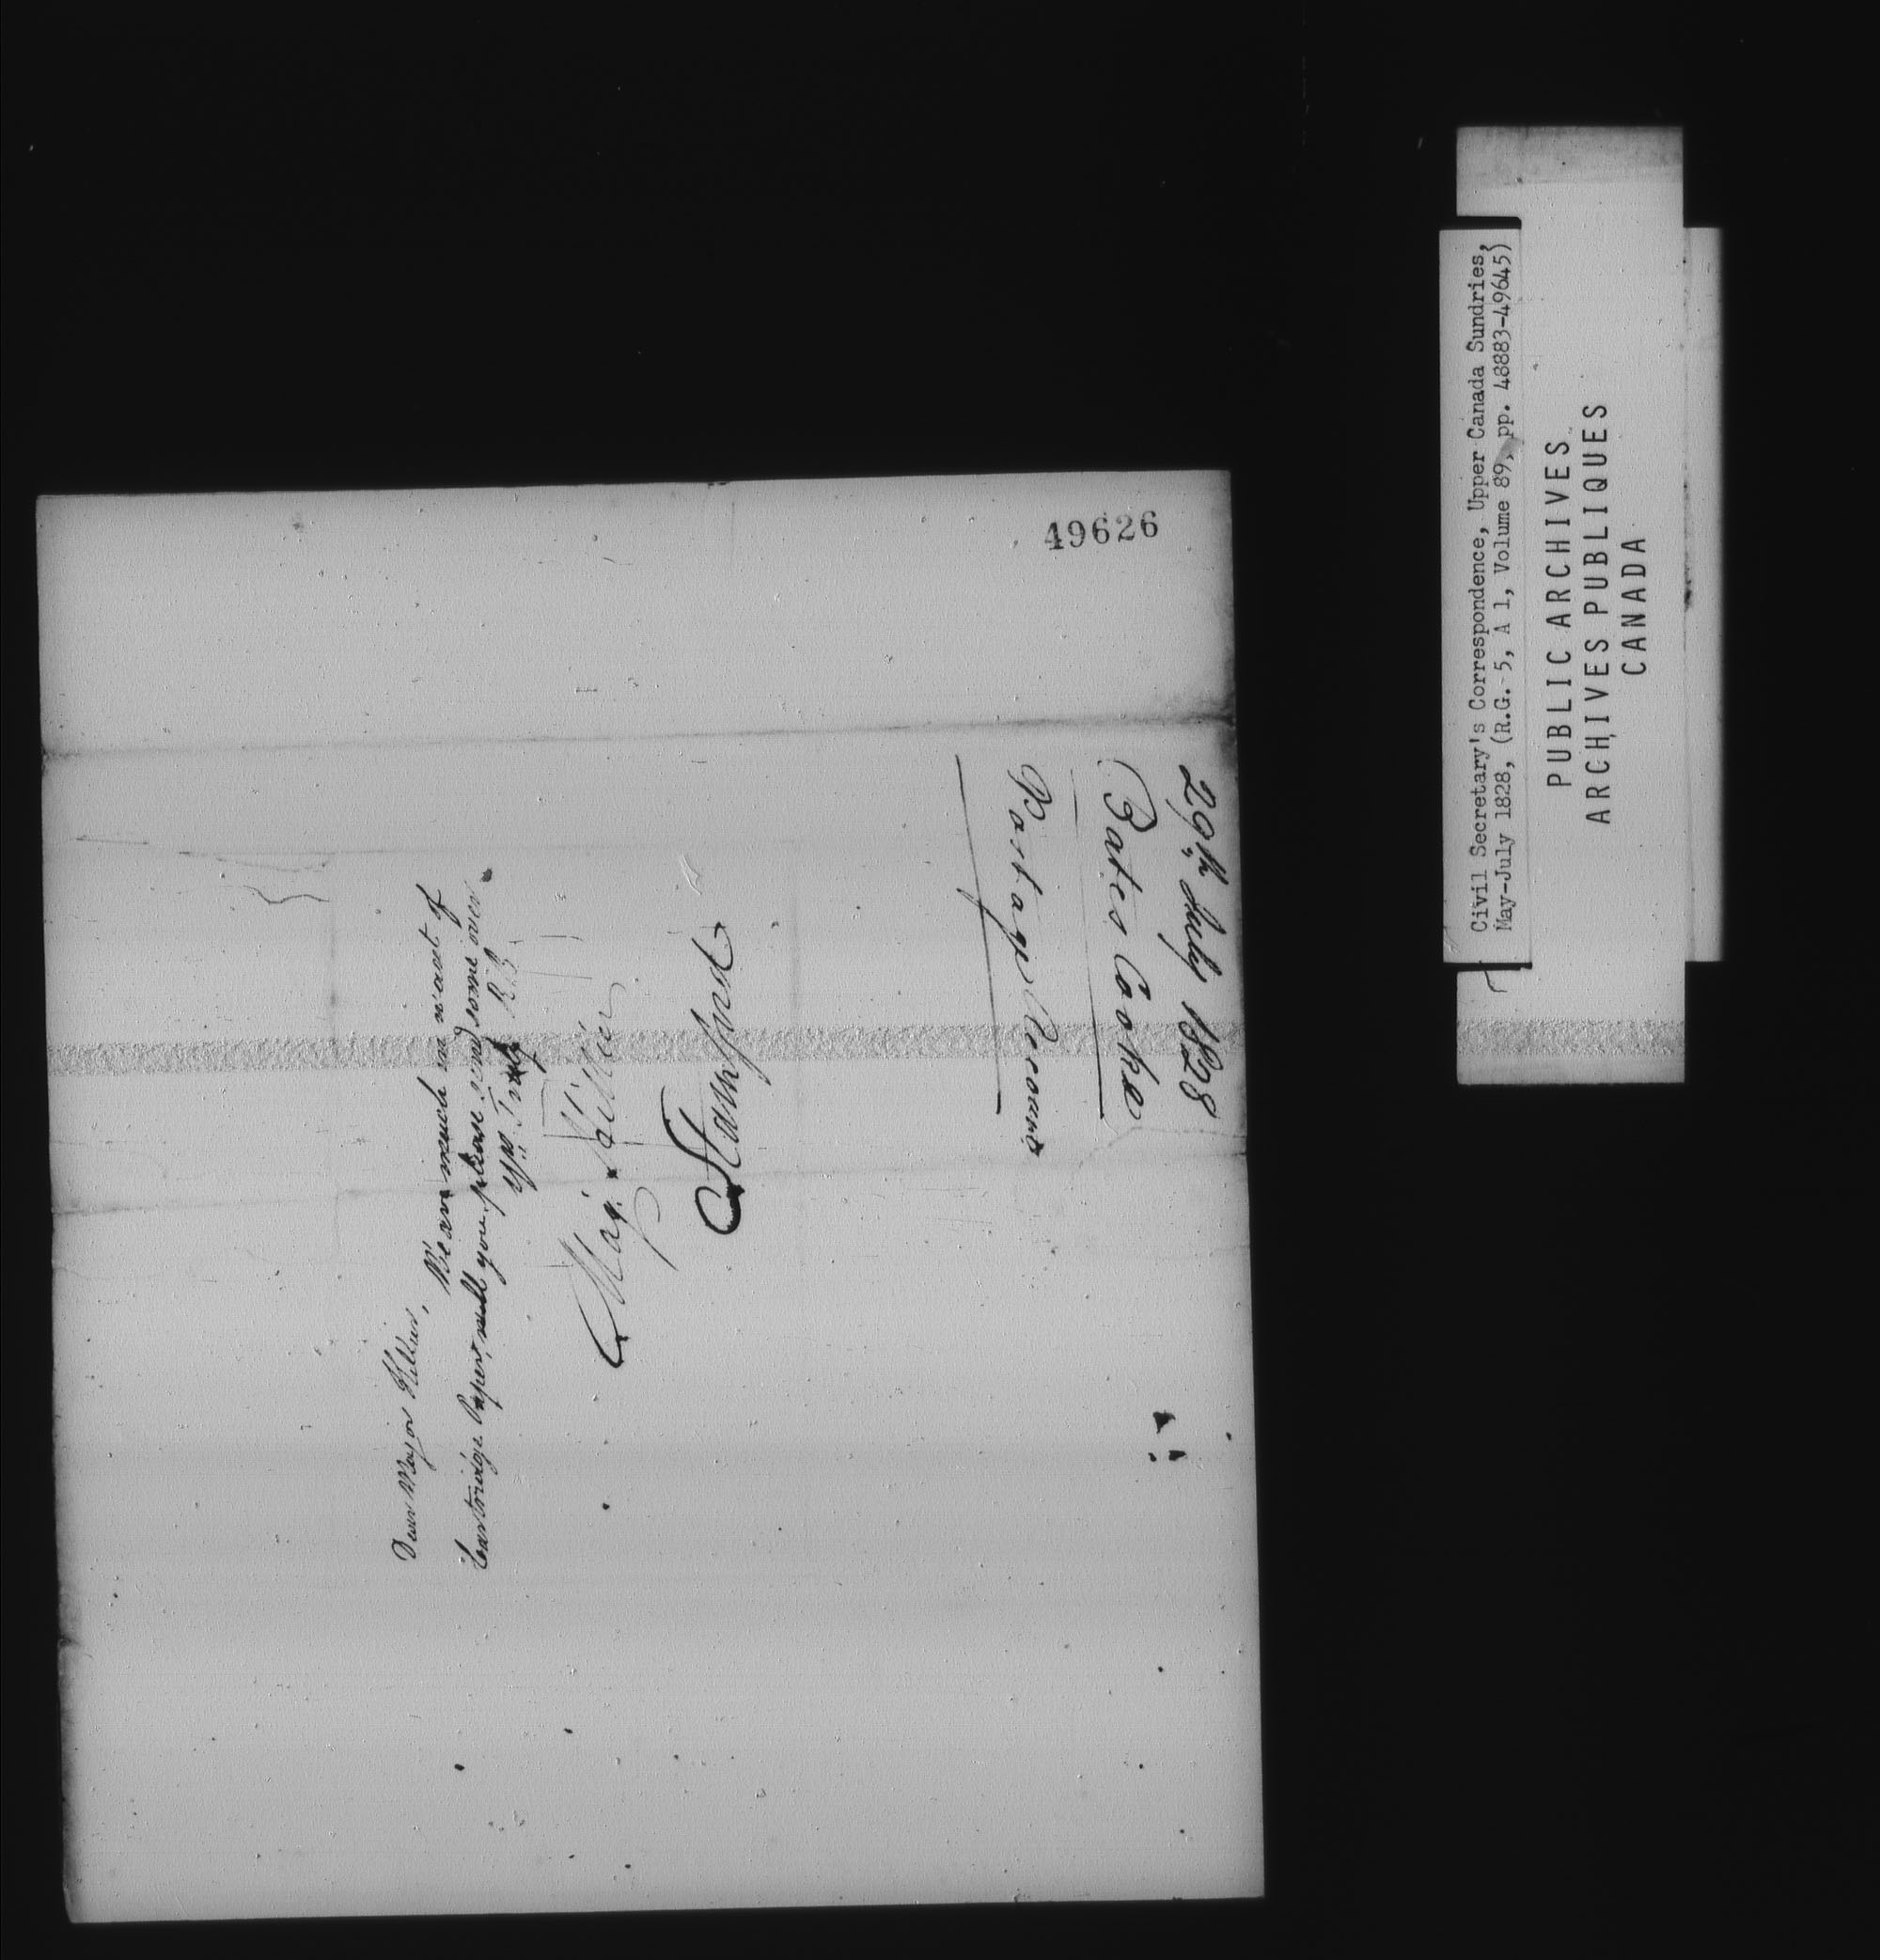 49626
29th July 1828
Bates Cooke
Postage Account
Dear Major Hillier,
We are much in want of
Cartridge Paper, will you please send some over.
Yrs Truly
Maj. Hillier
Stamford
Civil Secretary's Correspondence, Upper Canada Sundries,
May-July 1828, (R.G. 5, A 1, Volume 89, pp. 48883-49645)
PUBLIC ARCHIVES
ARCHIVES PUBLIQUES
CANADA